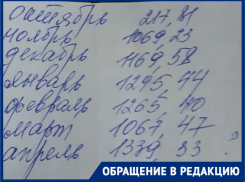 октябрь 217,81
ноябрь 1069,23
декабрь 1169,58
январь 1295,44
февраль 1265,40
март 1067,47 ?
апрель 1339,33 .
ОБРАЩЕНИЕ В РЕДАКЦИЮ